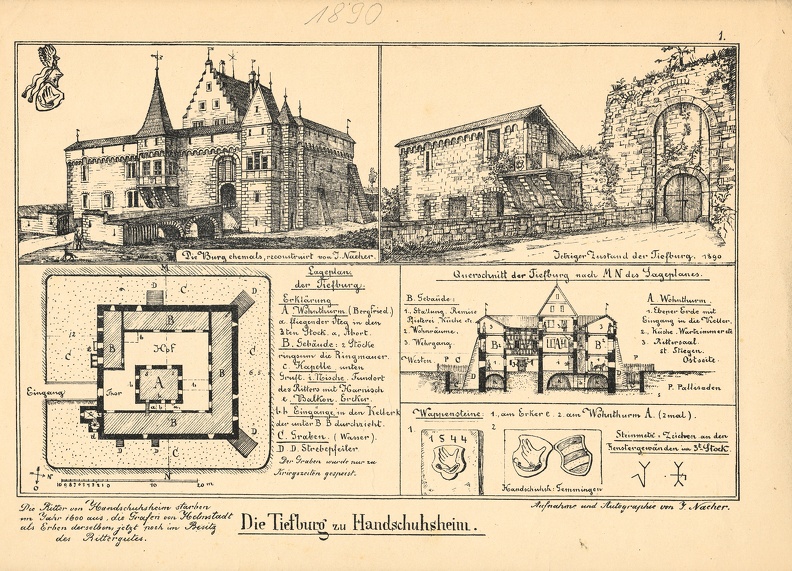 1890
1.
Die Burg ehemals, reconstruirt von J. Nacher.
Jetziger Zustand der Tiefburg. 1890
Lageplan
der Tiefburg.
Erklärung
A Wohnthurm (Bergfried)
a. fliegender Steg in den
3ten Stock. a, Abort.
B. Gebäude: 2 Stöcke
ringsum die Ringmauer.
c. Kapelle, unten
Gruft. i. Nische. Fundort
des Ritters mit Harnisch
e. Balkon. Erker.
b.b Eingänge in den Keller k
der unter B B durchzieht.
C. Graben. (Wasser).
D D. Strebpfeiler
Der Graben wurde nur zu
Kriegszeiten gespeist.
M
D
C
B
Hof
A
Eingang
Thor
N
20 m
Querschnitt der Tiefburg nach M N des Lageplanes.
B. Gebäude:
1. Stallung, Remise
Rüsterei Küche etc
2. Wohnräume.
3. Wehrgang.
Westen.
P C
D
B
A
B
C P
A. Wohnthurm.
1. Ebener Erde mit
Eingang in die Keller.
2. Küche. Wartzimmer etc
3. Rittersaal.
st. Stiegen.
Ostseite.
P. Pallisaden
Wappensteine: 1, am Erker e. 2. am Wohnthurm A. (2 mal).
1.
2
1544
Handschuhsh: Gemmingen
Steinmetz-Zeichen an den
Fenstergewänden im 3t. Stock.
Die Ritter von Handschuhsheim starben
im Jahr 1600 aus, die Grafen von Helmstadt
als Erben derselben jetzt noch im Besitz
des Rittergutes.
Die Tiefburg zu Handschuhsheim.
Aufnahme und Autographie von J. Nacher.